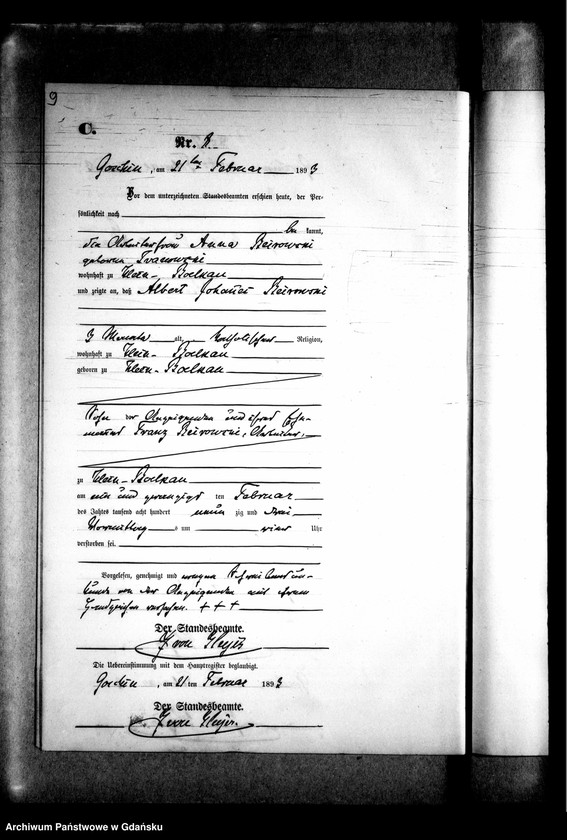 9
C.
Nr. 8.
Goschin, am 21ten Februar 1893
Vor dem unterzeichneten Standesbeamten erschien heute, der Per-
sönlichkeit nach
be kannt,
die Arbeiterfrau Anna
geborene
wohnhaft zu Klein-Boelkau
und zeigte an, daß Albert Johannes
3 Monate alt, katholischer Religion,
wohnhaft zu Klein-Boelkau
geboren zu Klein-Boelkau
Sohn der Anzeigenden und ihres Ehe-
mannes Franz Arbeiter,
zu Klein-Boelkau
am ein und zwanzigsten Februar
des Jahres tausend acht hundert neun zig und drei
Vormittags um vier Uhr
verstorben sei.
Vorgelesen, genehmigt und wegen Schreibensun-
kunde von der Anzeigenden mit ihrem
Handzeichen versehen. + + +
Der Standesbeamte.
Die Uebereinstimmung mit dem Hauptregister beglaubigt.
Goschin, am 21 ten Februar 1893
Der Standesbeamte.
Archiwum Państwowe w Gdańsku